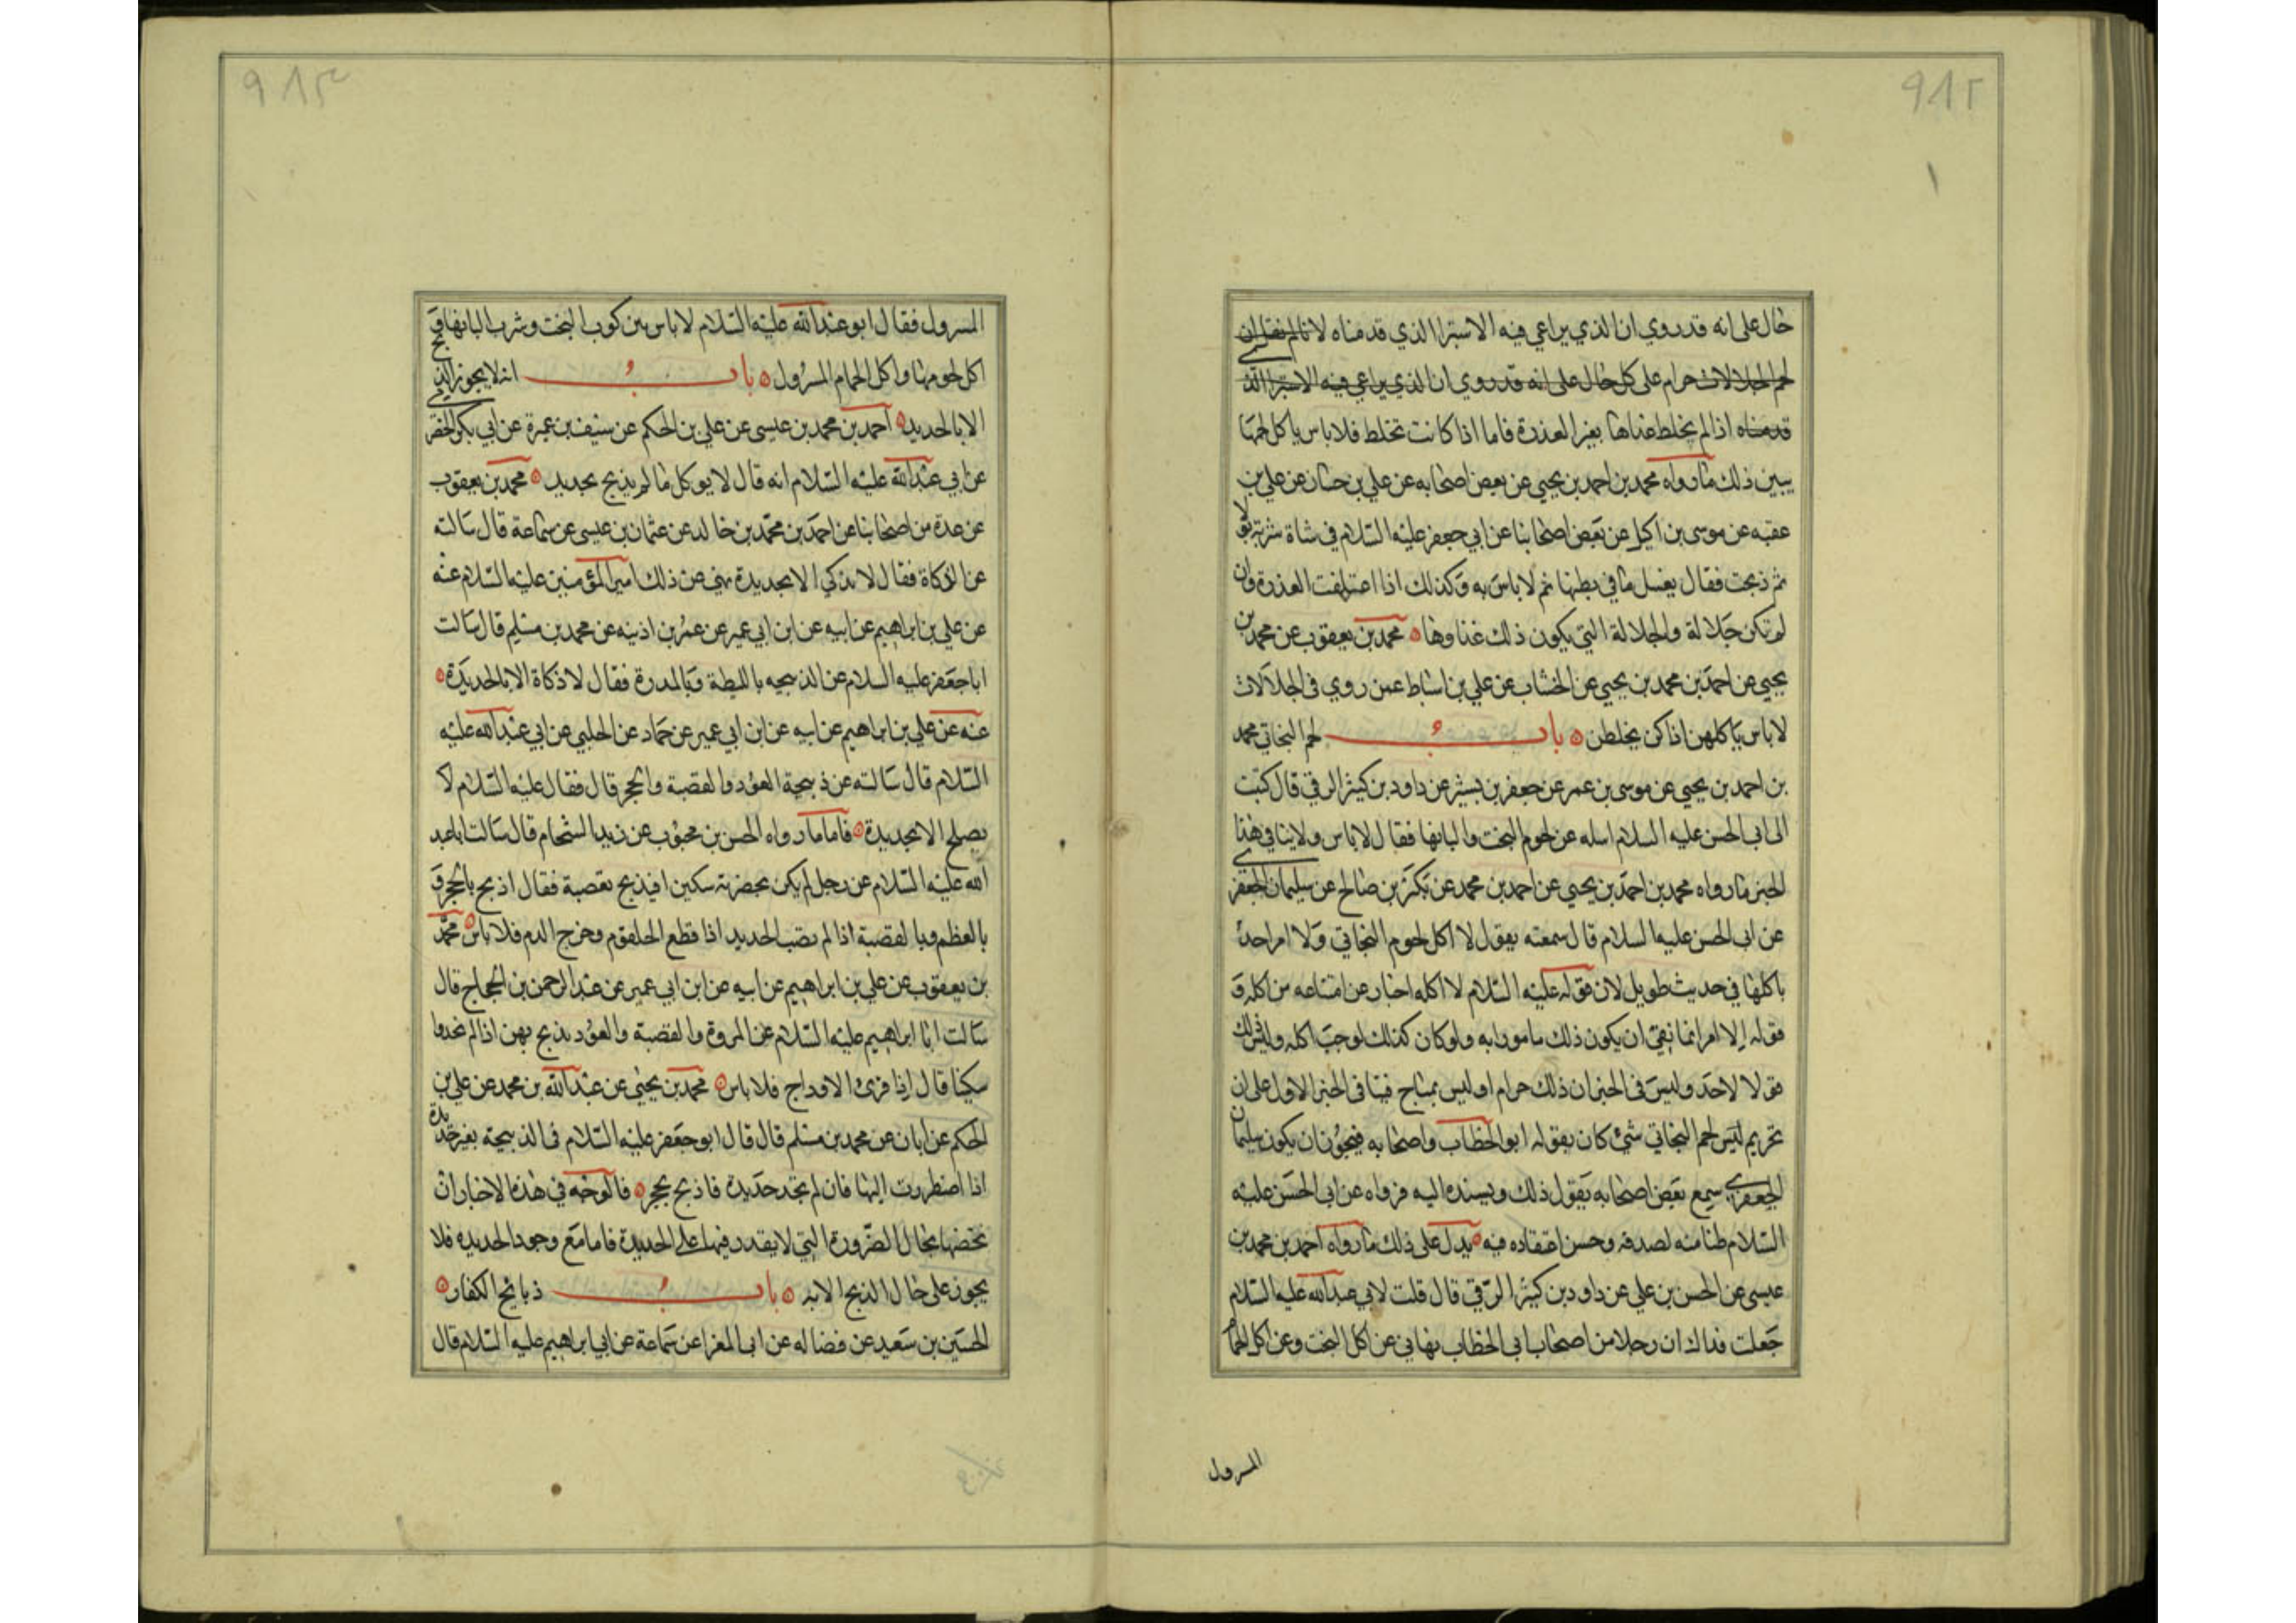 ٩١٢
١
حال على انه قد روي ان الذي يراعي فيه الاستبرا الذي قدمناه لانا لم نقل ان
لحم الجلالات حرام على كل حال على انه قد روي ان الذي يراعي فيه الاستبرا الذي
قدمناه اذا لم يخلط غذاها بغير العذرة فاما اذا كانت تخلط فلا باس باكل لحمها
يبين ذلك ما رواه محمد بن احمد بن يحيي عن بعض اصحابه عن علي بن حسان عن علي بن
عقبه عن موسى بن اكيل عن بعض اصحابنا عن ابي جعفر عليه السلام في شاة شربت بولا
ثم ذبحت فقال يغسل ما في بطنها ثم لا باس به وكذلك اذا اعتلفت العذرة وان
لم تكن جلالة والجلالة التي يكون ذلك غذاوها محمد بن يعقوب عن محمد بن
يحيي عن احمد بن محمد بن يحيي عن الخشاب عن علي بن اسباط عمن روي في الجلالات
لا باس باكلهن اذا كن يخلطن باب لحم البخاتي محمد
بن احمد بن يحيي عن موسى بن عمر عن جعفر بن بشير عن داود بن كثير الرقي قال كتبت
الى ابى الحسن عليه السلام اسله عن لحوم البخت والبانها فقال لا باس ولا ينافي هذا
الخبر ما رواه محمد بن احمد بن يحيي عن احمد بن محمد عن بكر بن صالح عن سليمان الجعفري
عن ابى الحسن عليه السلام قال سمعته يقول لا اكل لحوم البخاتي ولا امر احدا
باكلها في حديث طويل لان قوله عليه السلام لا اكله اخبار عن امتناعه من اكله و
قوله لا امر انما نفي ان يكون ذلك مامورا به ولو كان كذلك لوجب اكله وليس ذلك
قولا لاحد وليس فى الخبر ان ذلك حرام او ليس بمباح فينافى الخبر الاول على ان
تحريم ليس لحم البخاتي شئ كان يقوله ابو الخطاب واصحابه فيجوز ان يكون سليمان
الجعفري سمع بعض اصحابه يقول ذلك ويسنده اليه فرواه عن ابى الحسن عليه
السلام ظنا منه لصدقه وحسن اعتقاده فيه يدل على ذلك ما رواه احمد بن محمد بن
عيسى عن الحسن بن علي عن داود بن كثير الرقي قال قلت لابي عبد الله عليه السلام
جعلت فداك ان رجلا من اصحاب ابى الخطاب نهاني عن اكل البخت وعن اكل الحمام
المسرول
٩١٣
المسرول فقال ابو عبد الله عليه السلام لا باس بركوب البخت وشرب البانها و
اكل لحومها واكل الحمام المسرول باب انه لا يجوز الذبح
الا بالحديد احمد بن محمد بن عيسى عن علي بن الحكم عن سيف بن عميرة عن ابي بكر الحضرمي
عن ابي عبد الله عليه السلام انه قال لا يوكل ما لم يذبح بحديد محمد بن يعقوب
عن عدة من اصحابنا عن احمد بن محمد بن خالد عن عثمان بن عيسى عن سماعة قال سالته
عن الذكاة فقال لا يذكي الا بحديدة نهى عن ذلك امير المؤمنين عليه السلام عنه
عن علي بن ابراهيم عن ابيه عن ابن ابي عمير عن عمر بن اذينه عن محمد بن مسلم قال سالت
ابا جعفر عليه السلام عن الذبيحه بالليطة وبالمدرة فقال لا ذكاة الا بالحديدة
عنه عن علي بن ابراهيم عن ابيه عن ابن ابي عمير عن حماد عن الحلبي عن ابي عبد الله عليه
السلام قال سالته عن ذبيحة العود والقصبة والحجر قال فقال عليه السلام لا
يصلح الا بحديدة فاما ما رواه الحسن بن محبوب عن زيد الشحام قال سالت ابا عبد
الله عليه السلام عن رجل لم يكن بحضرته سكين افيذبح بقصبة فقال اذبح بالحجر و
بالعظم وبالقصبة اذا لم يصب الحديد اذا قطع الحلقوم وخرج الدم فلا باس محمد
بن يعقوب عن علي بن ابراهيم عن ابيه عن ابن ابي عمير عن عبد الرحمن بن الحجاج قال
سالت ابا ابراهيم عليه السلام عن المروة والقصبة والعود يذبح بهن اذا لم نجدوا
سكينا قال اذا فرى الاوداج فلا باس محمد بن يحيي عن عبد الله بن محمد عن علي بن
الحكم عن ابان عن محمد بن مسلم قال قال ابو جعفر عليه السلام في الذبيحة بغير حديدة
اذا اضطررت اليها فان لم تجد حديدة فاذبح بحجر فالوجه في هذه الاخبار ان
نخصها بحال الضرورة التي لا يقدر فيها على الحديدة فاما مع وجود الحديده فلا
يجوز على حال الذبح الا به باب ذبايح الكفار
الحسين بن سعيد عن فضاله عن ابى المغرا عن سماعة عن ابي ابراهيم عليه السلام قال